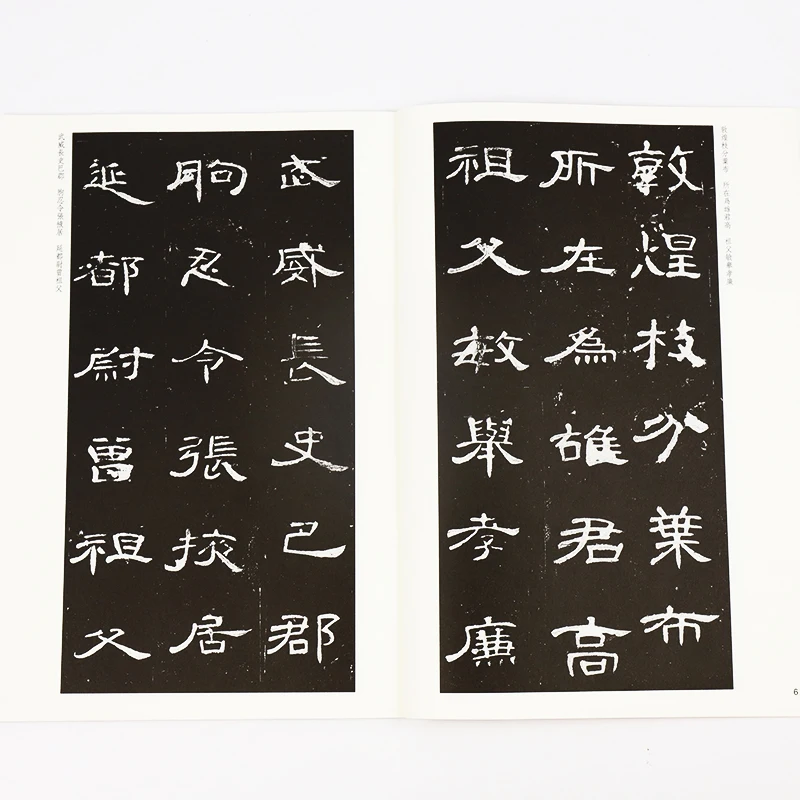 敦煌枝分葉布　所在爲雄君高　祖父敏舉孝廉
敦煌枝分葉布
所在爲雄君高
祖父敏舉孝廉
6
武威長史巴郡
朐忍令張掖居
延都尉曾祖父
武威長史巴郡　朐忍令張掖居　延都尉曾祖父